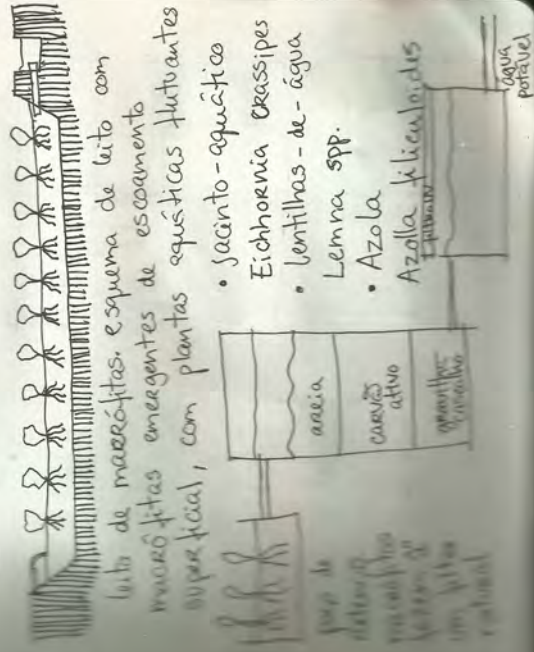 leito de macrófitas. esquema de leito com
macrófitas emergentes de escoamento
superficial, com plantas aquáticas flutuantes
• Jacinto-aquático
Eichhornia crassipes
• lentilhas-de-água
Lemna spp.
• Azola
Azolla filiculoides
areia
carvão
ativo
água
potável
de
natural